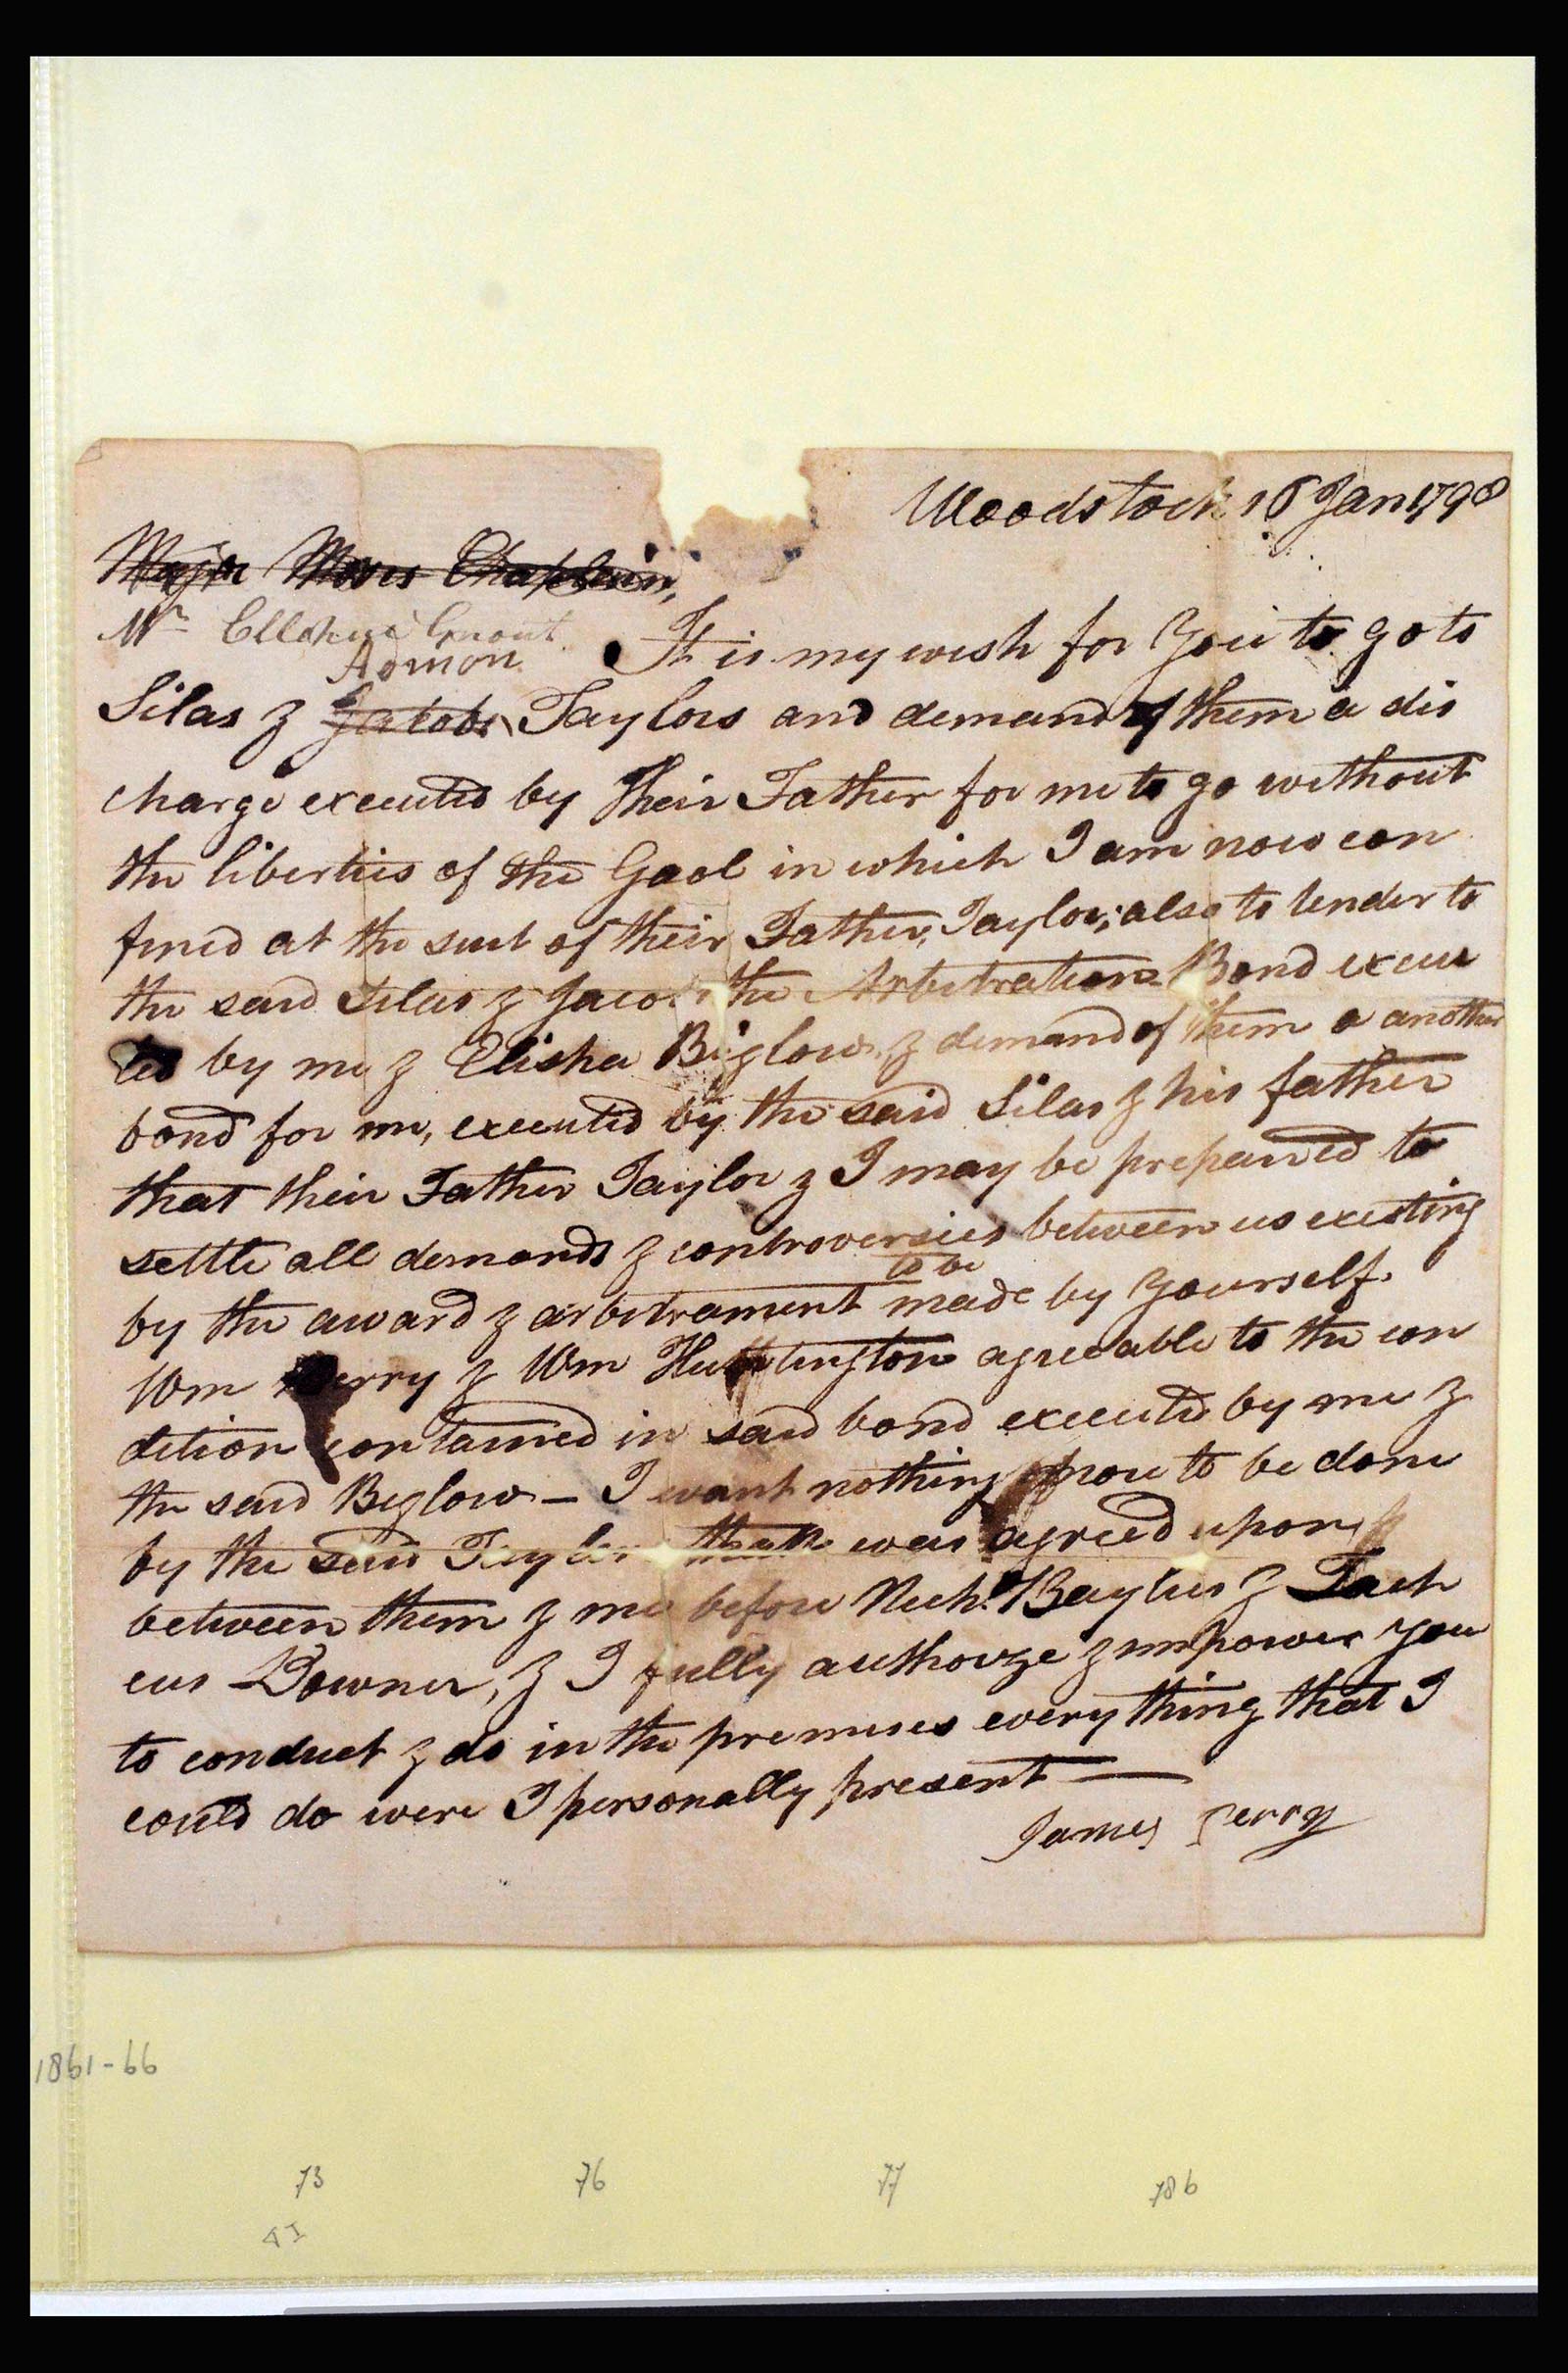 Woodstock 16 Jany 1798
Major Moses Chaplain,
Mr Grout
Admon It is my wish for you to go to
Silas & Jacobs Taylors and demand of them a dis
charge executed by their Father for me to go without
the liberties of the Gaol in which I am now con
fined at the suit of their Father, Taylor; also to tender to
the said Silas & Jacob the Arbitration Bond execu
ted by me & Elisha Biglow, & demand of them a another
bond for me, executed by the said Silas & his father
that their Father Taylor & I may be prepared to
settle all demands & controversies between us existing
to be
by the award & arbitrament made by yourself.
Wm Perry & Wm Huntington agreeable to the con
dition contained in said bond executed by me &
the said Biglow — I want nothing more to be done
by the said Taylor than was agreed upon
between them & me before Neh. Bayles & Zach
eus Downer, & I fully authorize & impower you
to conduct & do in the premises everything that I
could do were I personally present —
James Perry
1861-66
73 76 77 786